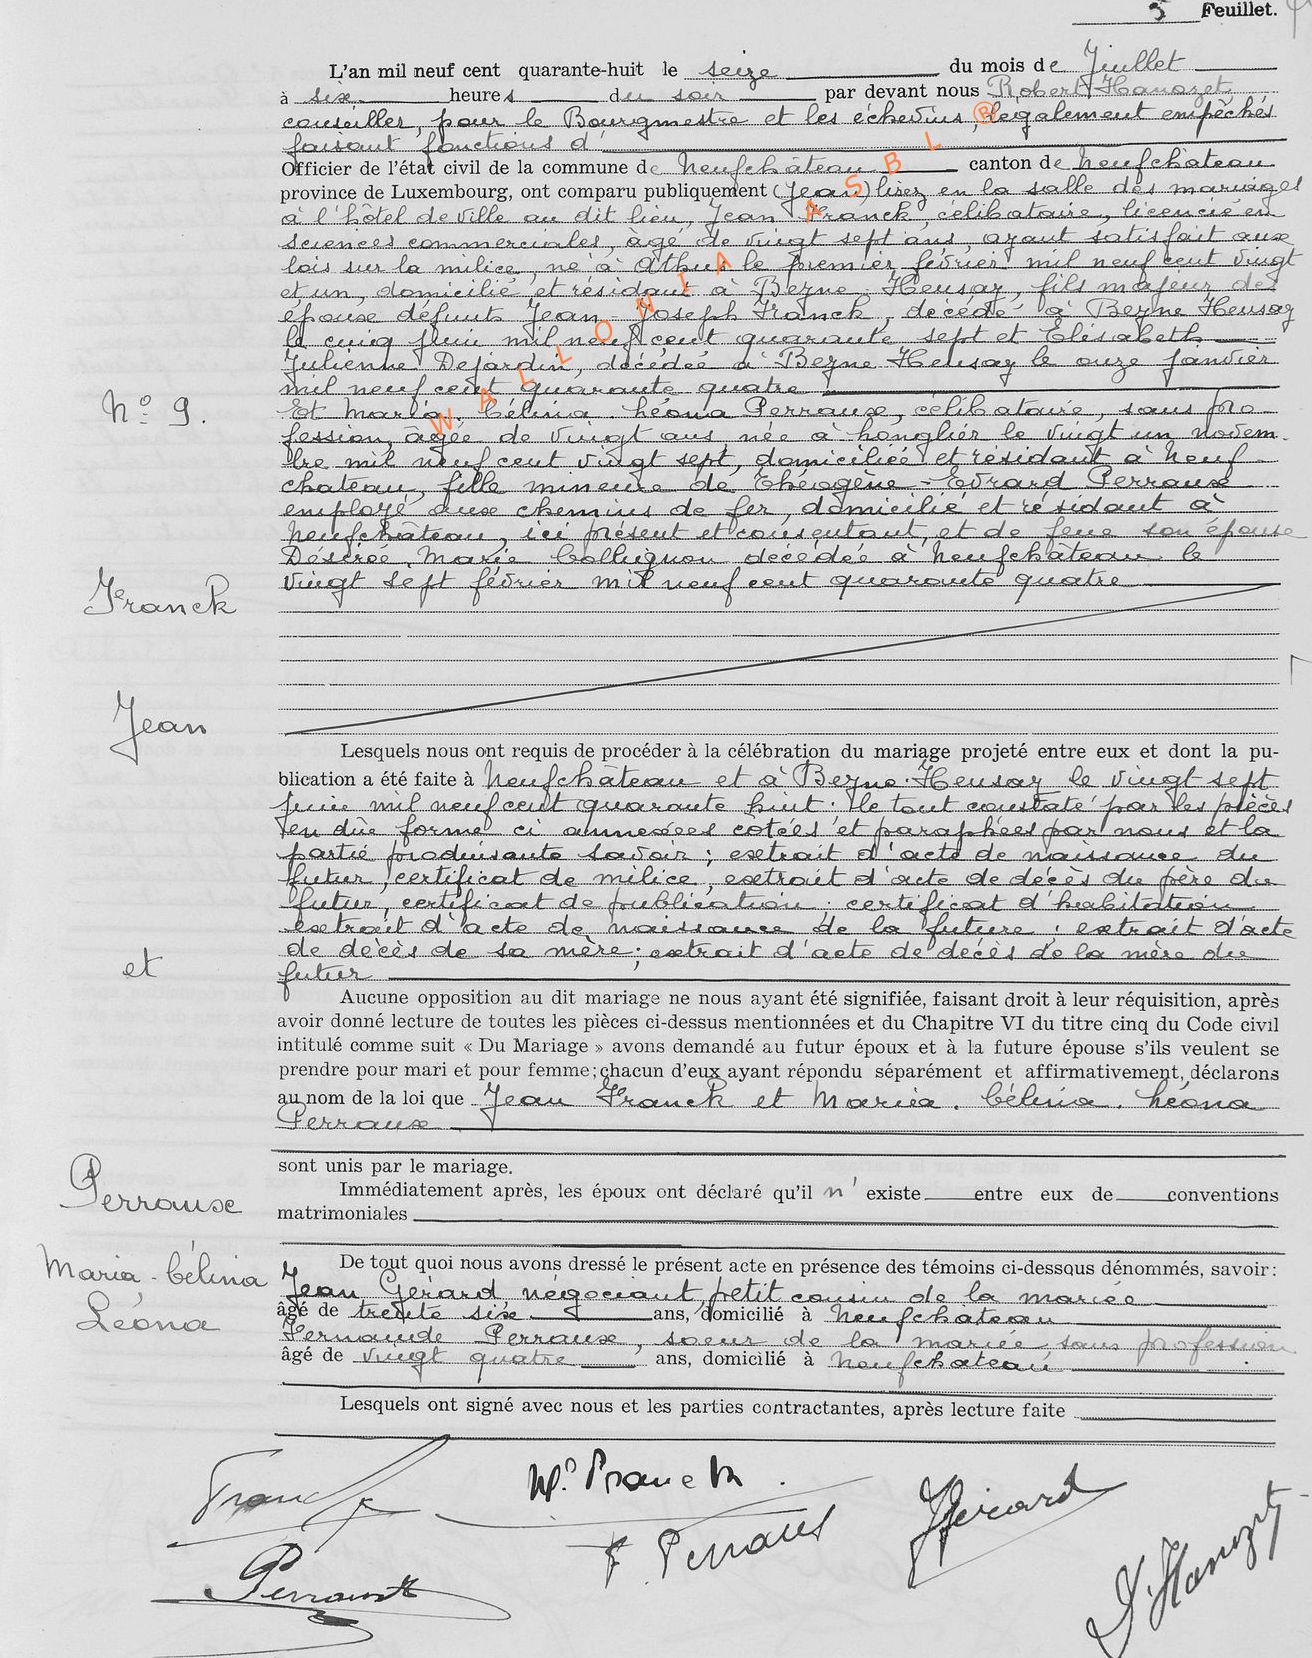 5 Feuillet.
L'an mil neuf cent quarante-huit le seize du mois de Juillet
à six heures du soir par devant nous Robert Hanozet
conseiller, pour le Bourgmestre et les échevins légalement empêchés
faisant fonctions d'
Officier de l'état civil de la commune de Neufchâteau canton de Neufchâteau
province de Luxembourg, ont comparu publiquement (Jean) lirez en la salle des mariages
à l'hôtel de ville au dit lieu, Jean Franck, célibataire, licencié en
sciences commerciales, âgé de vingt sept ans, ayant satisfait aux
lois sur la milice, né à Athus le premier février mil neuf cent vingt
et un, domicilié et résidant à Beyne-Heusay, fils majeur des
épouse défunts Jean-Joseph Franck, décédé à Beyne Heusay
le cinq juin mil neuf cent quarante sept et Elisabeth
Julienne Dejardin, décédée à Beyne-Heusay le onze janvier
mil neuf cent quarante quatre
N° 9.
Et Maria. Célina. Léona Perraux, célibataire, sans pro-
fession, âgée de vingt ans, née à Longlier le vingt un novem-
bre mil neuf cent vingt sept, domiciliée et résidant à Neuf-
chateau, fille mineure de Théogène-Evrard Perraux
employé aux chemins de fer, domicilié et résidant à
Neufchâteau, ici présent et consentant, et de feue son épouse
Désirée. Marie Collignon décédée à Neufchâteau le
vingt sept février mil neuf cent quarante quatre
Franck
Jean
Lesquels nous ont requis de procéder à la célébration du mariage projeté entre eux et dont la pu-
blication a été faite à Neufchâteau et à Beyne-Heusay le vingt sept
juin mil neuf cent quarante huit; le tout constaté par les pièces
en due forme ci annexées cotées et paraphées par nous et la
partie produisante savoir; extrait d'acte de naissance du
futur, certificat de milice, extrait d'acte de décès du père du
futur, certificat de publication; certificat d'habitation
extrait d'acte de naissance de la future; extrait d'acte
de décès de sa mère; extrait d'acte de décès de la mère du
futur
et
Aucune opposition au dit mariage ne nous ayant été signifiée, faisant droit à leur réquisition, après
avoir donné lecture de toutes les pièces ci-dessus mentionnées et du Chapitre VI du titre cinq du Code civil
intitulé comme suit « Du Mariage » avons demandé au futur époux et à la future épouse s'ils veulent se
prendre pour mari et pour femme; chacun d'eux ayant répondu séparément et affirmativement, déclarons
au nom de la loi que Jean Franck et Maria. Célina. Léona
Perraux
sont unis par le mariage.
Perraux
Immédiatement après, les époux ont déclaré qu'il n'existe entre eux de conventions
matrimoniales
Maria-Célina
Léona
De tout quoi nous avons dressé le présent acte en présence des témoins ci-dessous dénommés, savoir:
Jean Gérard négociant, petit cousin de la mariée
âgé de trente six ans, domicilié à Neufchâteau
Fernande Perraux, soeur de la mariée, sans profession
âgé de vingt quatre ans, domicilié à Neufchâteau
Lesquels ont signé avec nous et les parties contractantes, après lecture faite
Franck
F. Perraux
JGérard
Perraux
R. Hanozet
WALLONIA ASBL ®